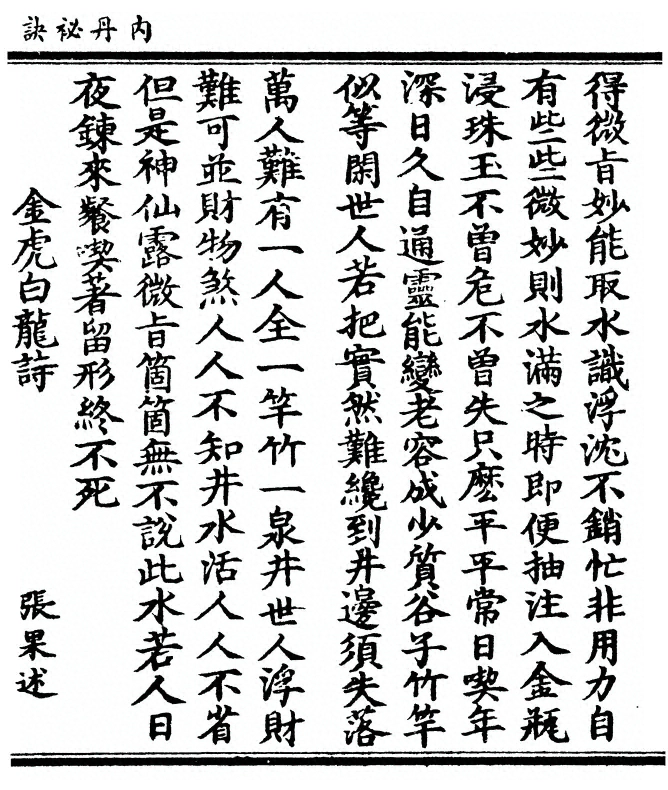 內丹祕訣
得微旨妙能取水識浮沈不銷忙非用力自
有些些微妙則水滿之時即便抽注入金瓶
浸珠玉不曾危不曾失只麼平平常日喫年
深日久自通靈能變老容成少質谷子竹竿
似等閑世人若把實然難纔到井邊須失落
萬人難有一人全一竿竹一泉井世人浮財
難可並財物煞人人不知井水活人人不省
但是神仙露微旨箇箇無不說此水若人日
夜鍊來餐喫著留形終不死
金虎白龍詩 張果述